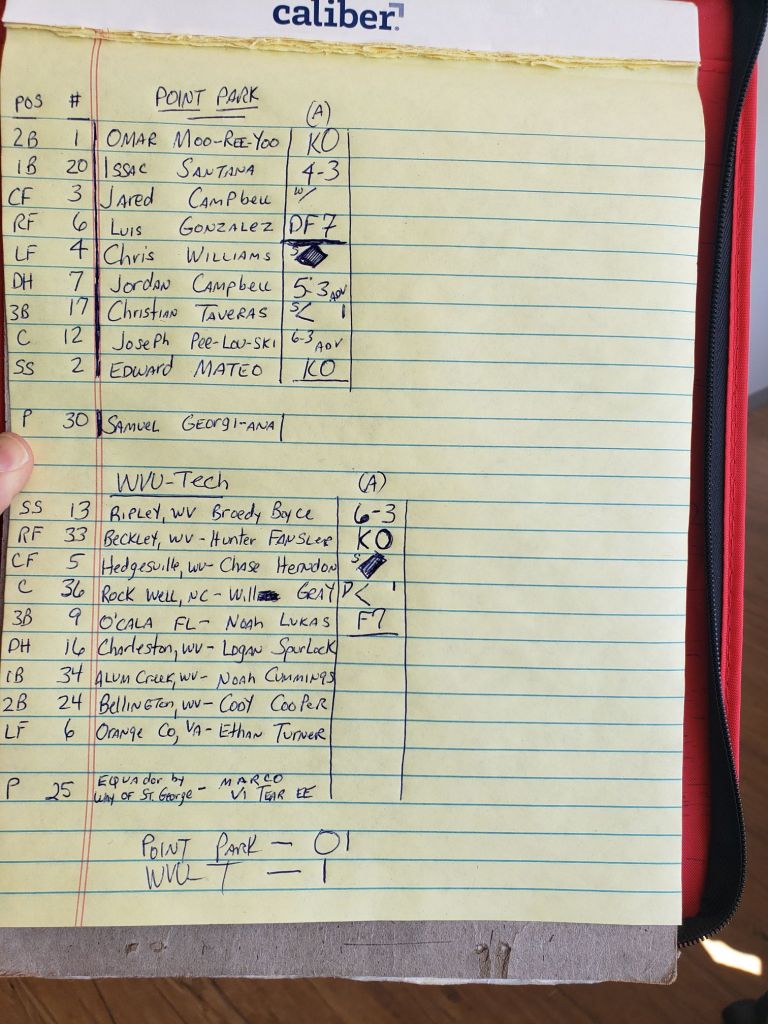 caliber
POS # POINT PARK (A)
2B 1 OMAR MOO-REE-YOO KO
1B 20 ISSAC SANTANA 4-3
CF 3 Jared CAMPbell W/
RF 6 LUIS GONZALEZ DF7
LF 4 Chris WILLIAMS S
DH 7 Jordan CAMPbell 5-3 ADV
3B 17 Christian TAVERAS S< 1
C 12 Joseph PEE-LOU-SKI 6-3 ADV
SS 2 EDWARD MATEO KO
P 30 SAMUEL GEORGI-ANA
WVU-Tech (A)
SS 13 RIPLEY, WV Broedy Boyce 6-3
RF 33 BECKLEY, WV - Hunter FANSLER KO
CF 5 Hedgesville, WV - Chase Herndon S
C 36 ROCK WELL, NC - Will GRAY D< 1
3B 9 O'CALA FL - NOAH LUKAS F7
DH 16 Charleston, WV - LOGAN SPURLOCK
1B 34 ALUM Creek, WV - NOAH CUMMINGS
2B 24 BellinGTON, WV - COOY COOPER
LF 6 ORANGE CO, VA - ETHAN TURNER
P 25 EQUADOR by WAY OF ST. George - MARCO VI TEAR EE
POINT PARK - 01
WVU T - 1